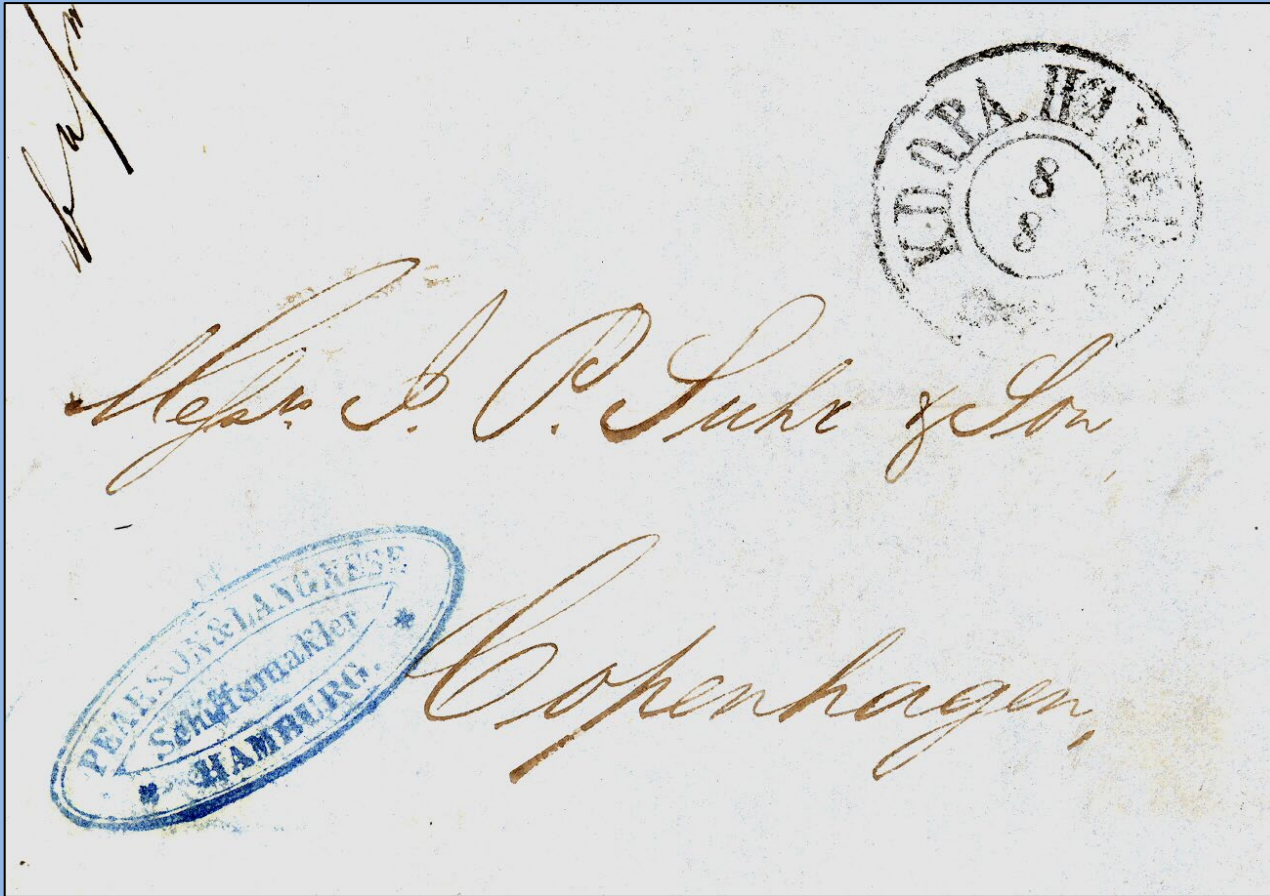 K.D.O.P.A. HAMB
8
8
Messrs. J. P. Suhr & Son,
Copenhagen,
PEARSON & LANGNESE
Schiffsmakler
* HAMBURG. *